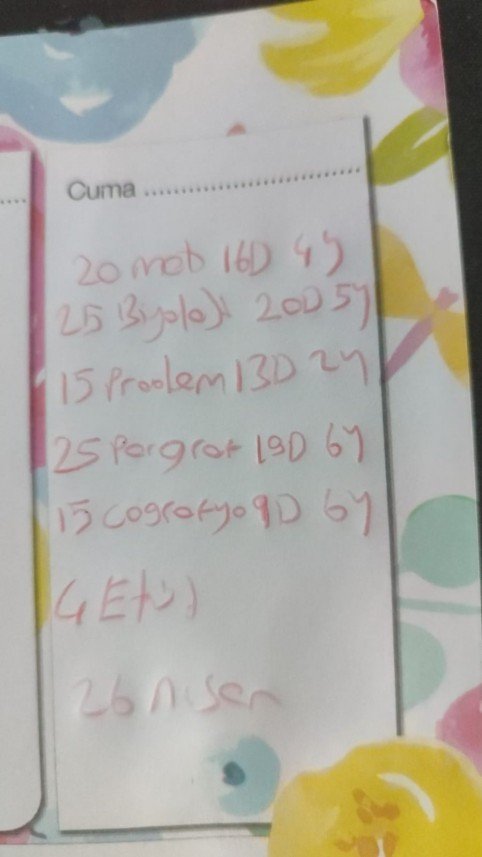 Cuma ................................
20 mat 16D 4y
25 Biyoloji 20D 5y
15 Problem 13D 2y
25 Pargraf 19D 6y
15 Cografya 9D 6y
4 Etüt
26 Nisan